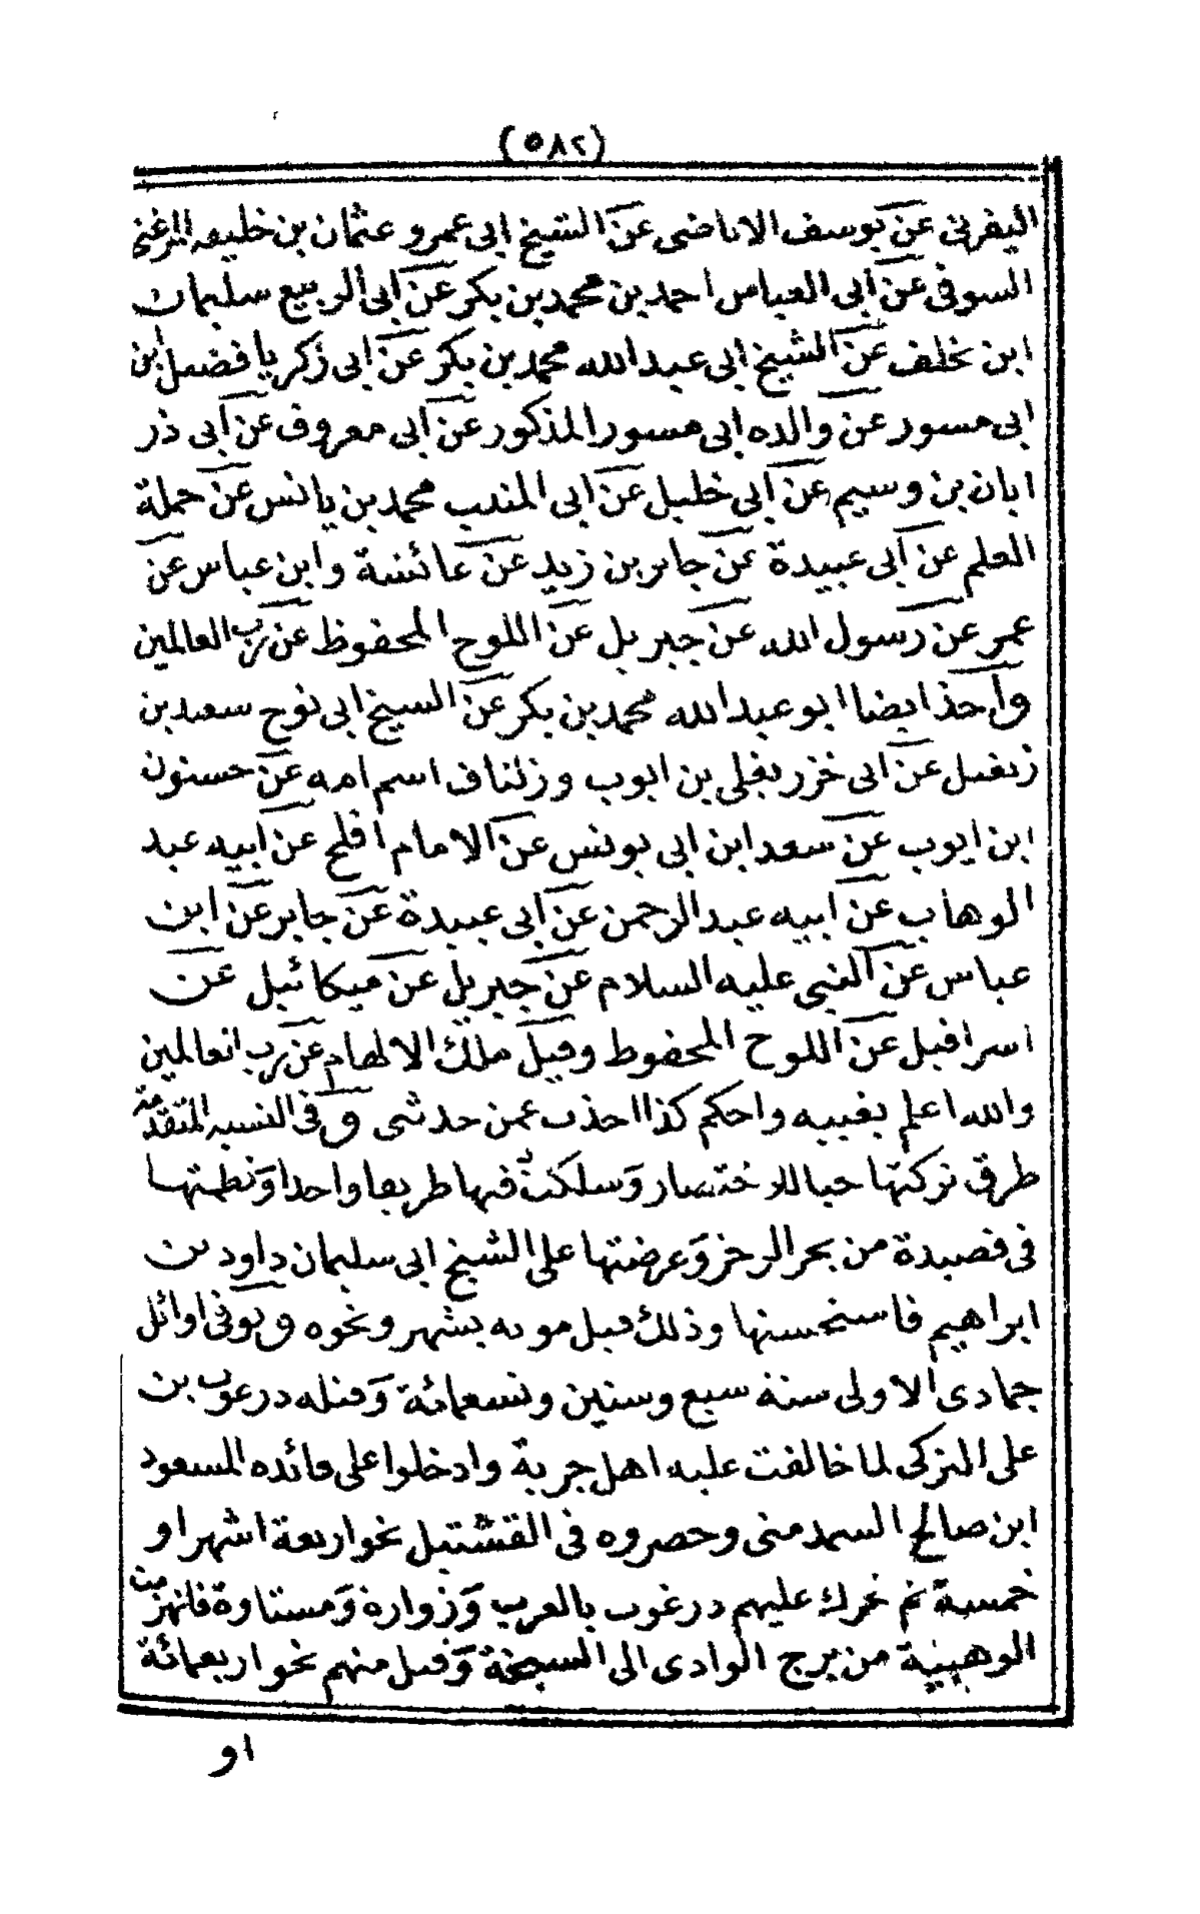 (٥٨٢)
اليفرنى عن يوسف الاباضى عن الشيخ ابى عمرو عثمان بن خليفه المرغنى
السوفى عن ابى العباس احمد بن محمد بن بكر عن ابى الربيع سليمان
ابن خلف عن الشيخ ابى عبد الله محمد بن بكر عن ابى زكريا فضيل ابن
ابى مسور عن والده ابى مسور المذكور عن ابى معروف عن ابى ذر
ابان بن وسيم عن ابى خليل عن ابى المنيب محمد بن يانس عن حملة
العلم عن ابى عبيدة عن جابر بن زيد عن عائشة وابن عباس عن
عمر عن رسول الله عن جبريل عن اللوح المحفوظ عن رب العالمين
واخذ ايضا ابو عبد الله محمد بن بكر عن الشيخ ابى نوح سعيد بن
زنغيل عن ابى خزر يغلى بن ايوب وزلتاف اسم امه عن حسنون
ابن ايوب عن سعد ابن ابى يونس عن الامام افلح عن ابيه عبد
الوهاب عن ابيه عبد الرحمن عن ابى عبيدة عن جابر عن ابن
عباس عن النبى عليه السلام عن جبريل عن ميكائيل عن
اسرافيل عن اللوح المحفوظ وقيل ملك الالهام عن رب العالمين
والله اعلم بغيبه واحكم كذا اخذت عمن حدثنى وفى النسبه المتقدمة
طرق تركتها حبا للاختصار وسلكت فيها طريقا واحدا ونظمتها
فى قصيدة من بحر الرجز وعرضتها على الشيخ ابى سليمان داود بن
ابراهيم فاستحسنها وذلك قبل موته بشهر ونحوه وتوفى اوائل
جمادى الاولى سنة سبع وستين وتسعمائة وقتله درغوب بن
على التركى لما خالفت عليه اهل جربة وادخلوا على قائده المسعود
ابن صالح السمدمنى وحصروه فى القشتيل نحو اربعة اشهر او
خمسة ثم تحرك عليهم درغوب بالعرب وزوارة ومستاوة فانهزمت
الوهبية من برج الوادى الى السبخة وقتل منهم نحو اربعمائة
او